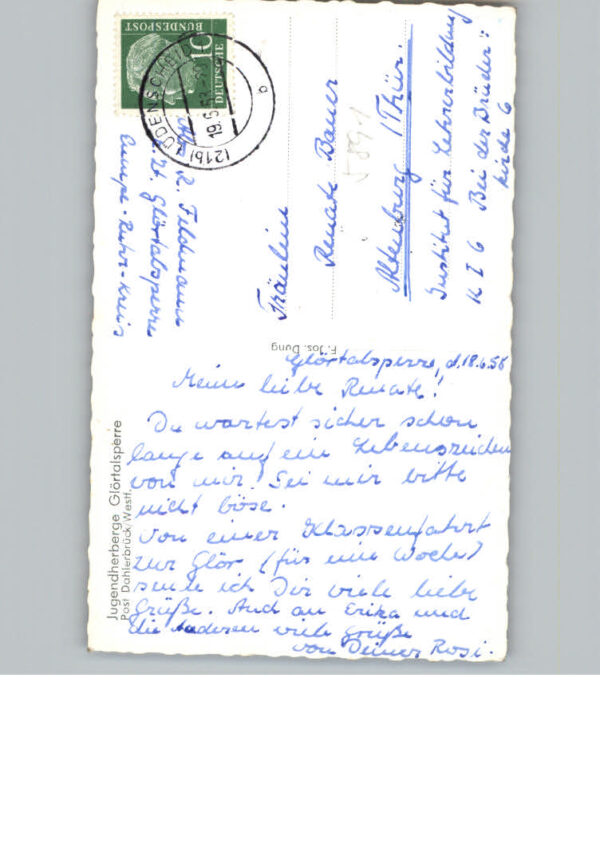 DEUTSCHE
BUNDESPOST
10
(21b) LÜDENSCHEID
19.6.58
b
R. Feldmann
z.Zt. Glörtalsperre
Ennepe-Ruhr-Kreis
Fräulein
Renate Bauer
Altenburg /Thür.
Institut für Lehrerbildung
K I 6 Bei der Brüder-
kirche 6
F. Jos. Dung
Jugendherberge Glörtalsperre
Post Dahlerbrück/Westf.
Glörtalsperre, d. 18.6.58
Meine liebe Renate!
Du wartest sicher schon
lange auf ein Lebenszeichen
von mir! Sei mir bitte
nicht böse.
Von einer Klassenfahrt
zur Glör (für eine Woche)
sende ich Dir viele liebe
Grüße. Auch an Erika und
die anderen viele Grüße
von Deiner Rosi.